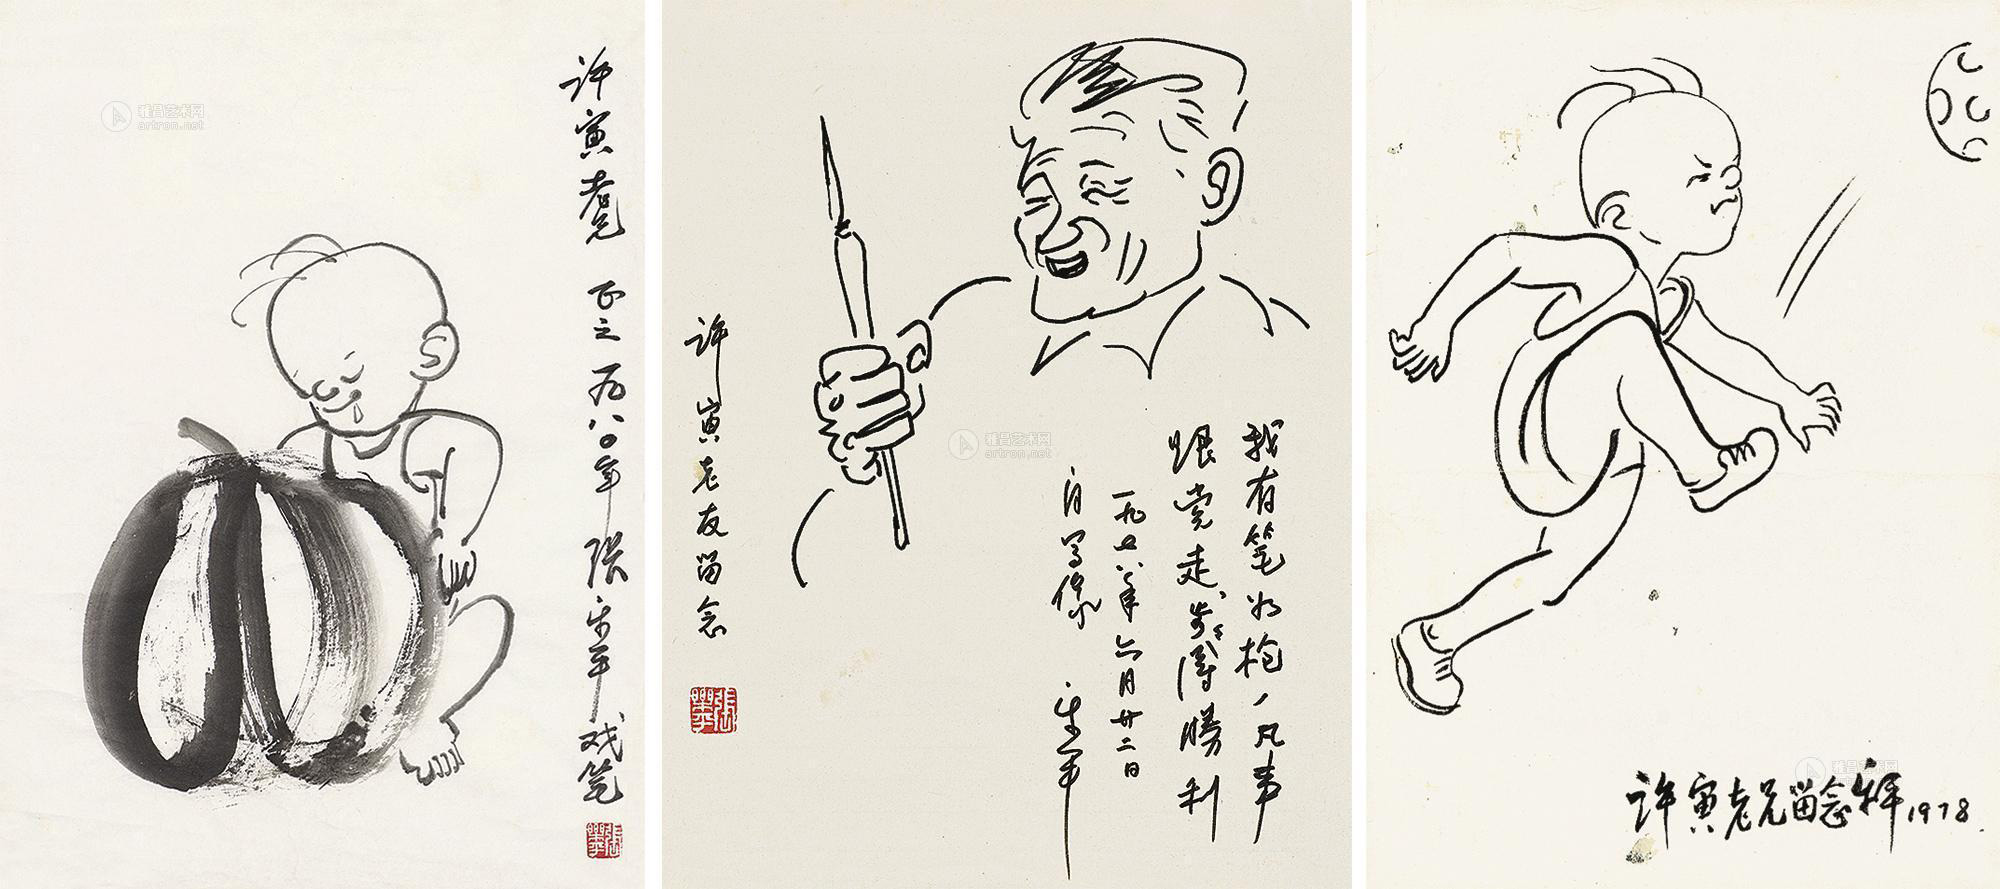 许寅老兄 正之 一九八〇年 张乐平戏笔
许寅老友留念
我有笔如枪，凡事
跟党走，步步得勝利
一九七八年六月廿二日
自写像 乐平
许寅老兄留念 乐平 1978.
雅昌艺术网
artron.net
雅昌艺术网
artron.net
雅昌艺术网
artron.net